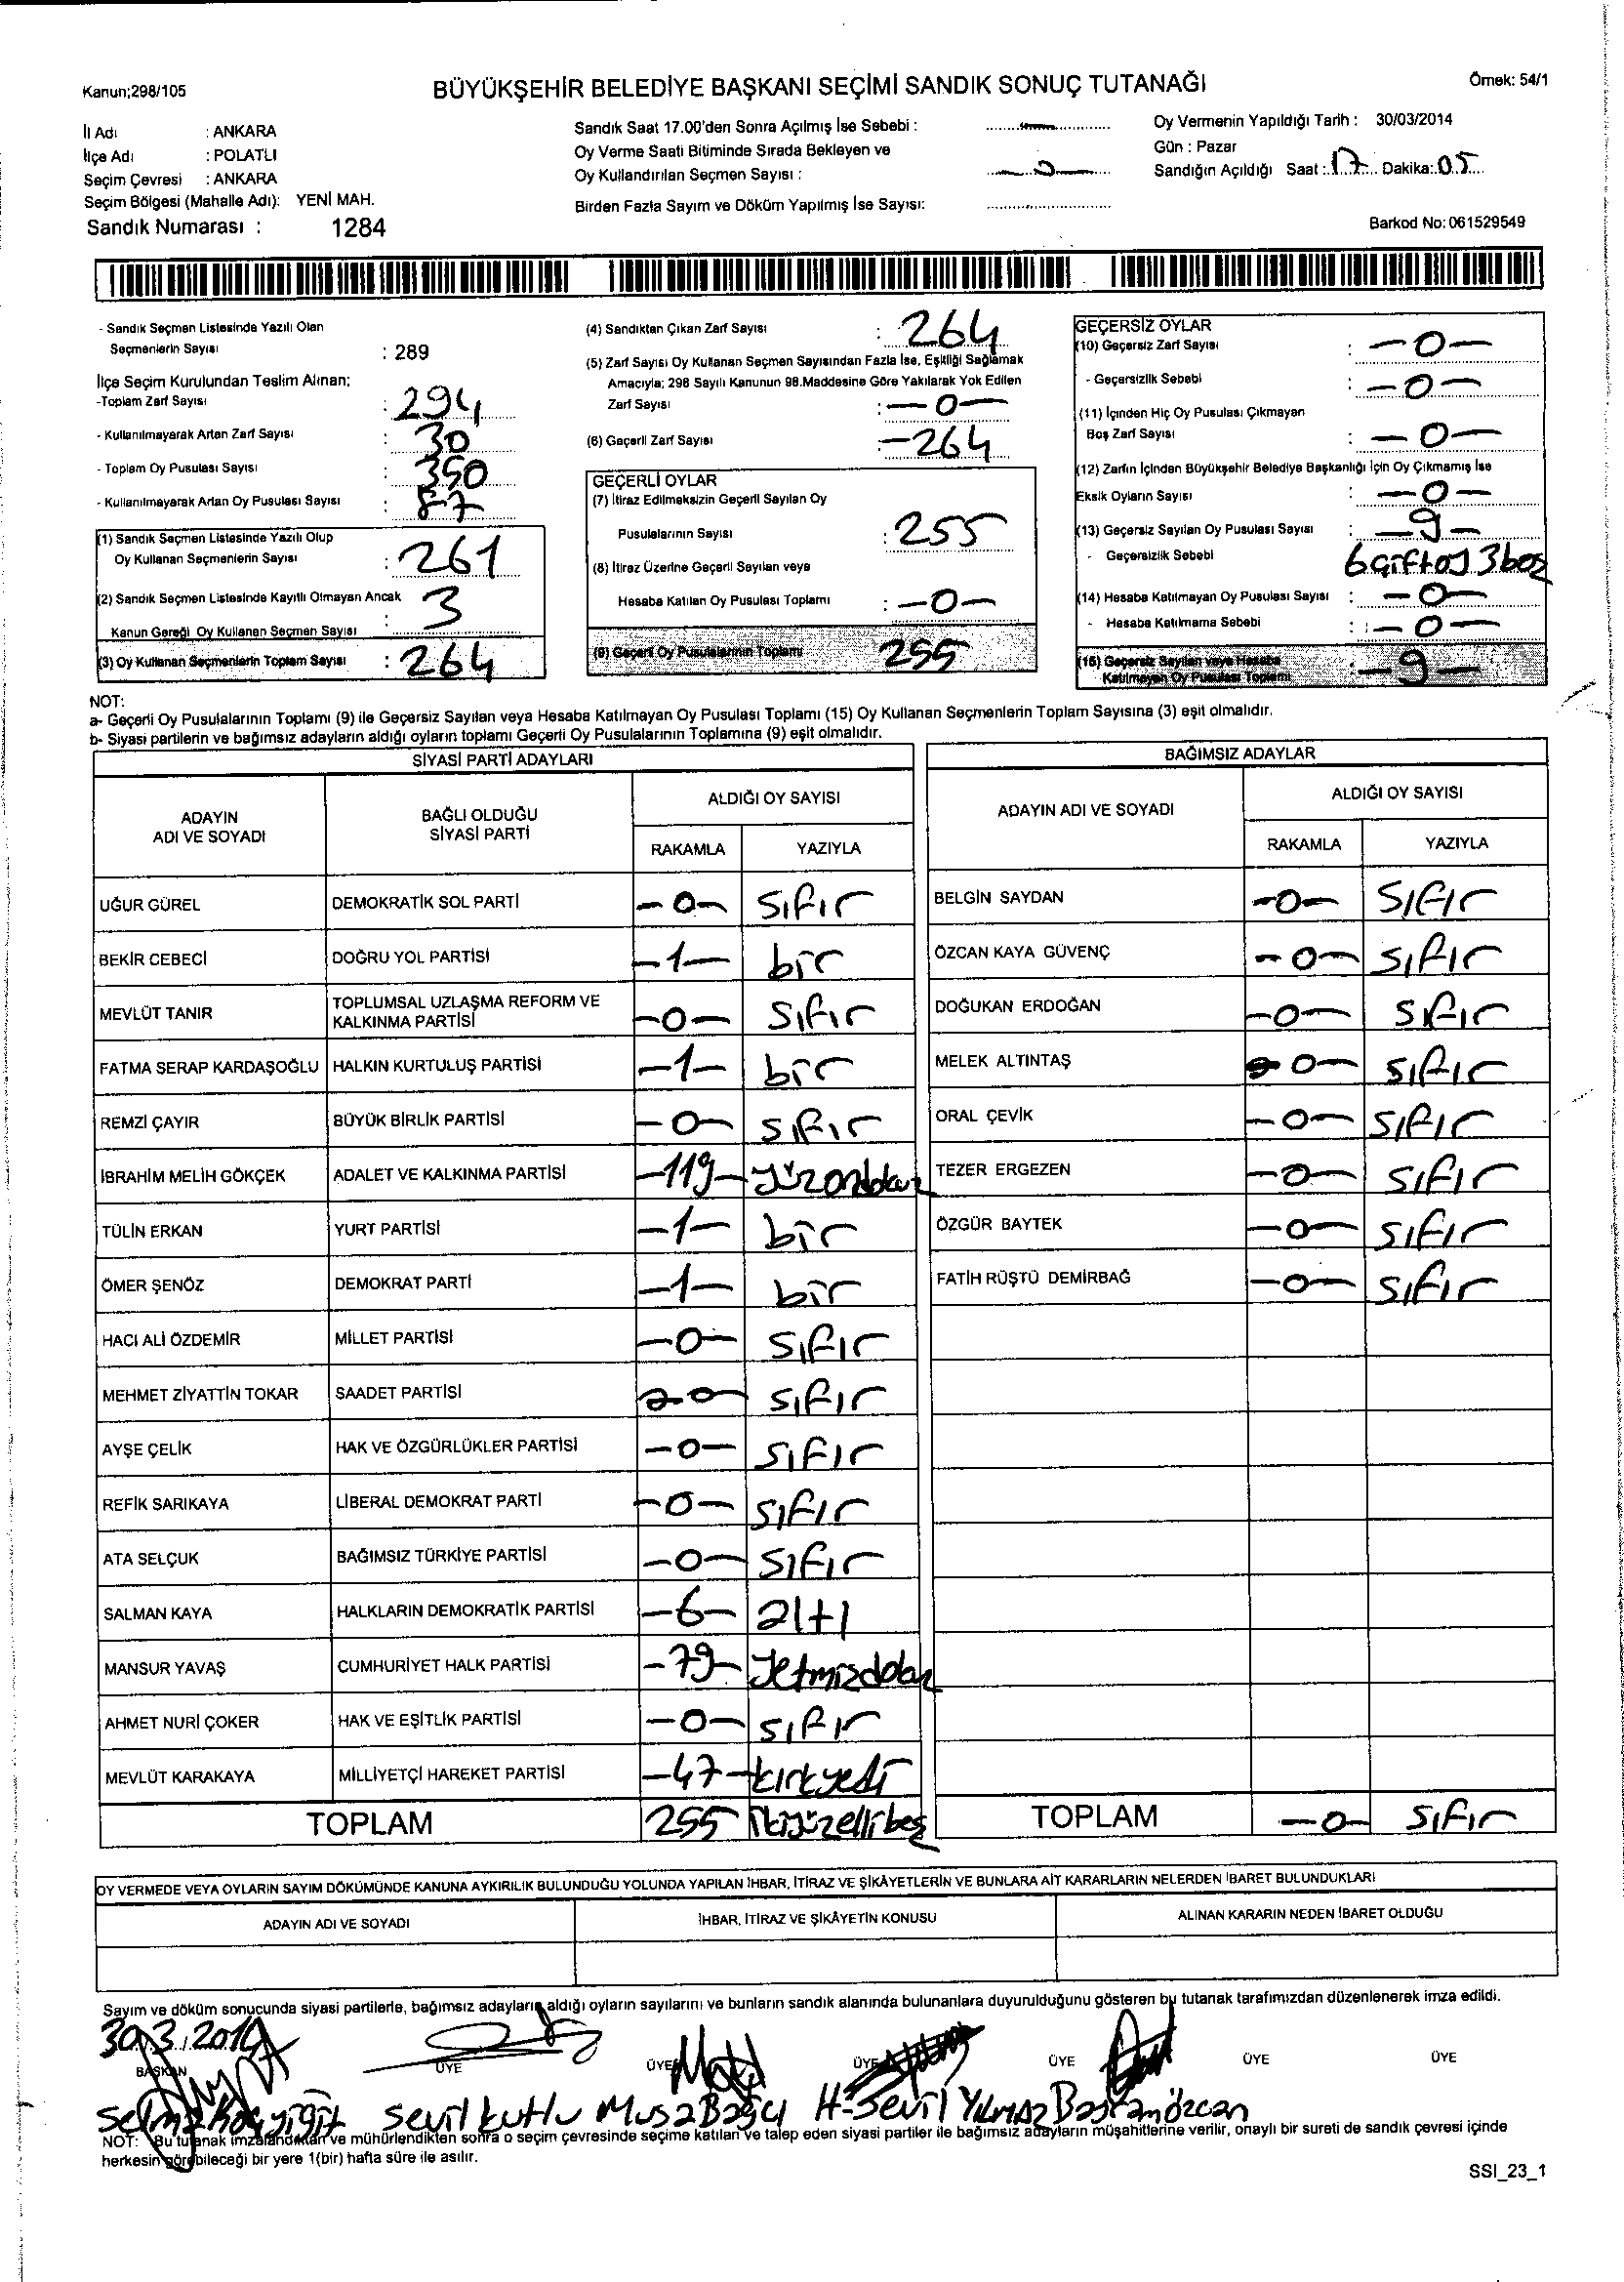 Kanun;298/105
BÜYÜKŞEHİR BELEDİYE BAŞKANI SEÇİMİ SANDIK SONUÇ TUTANAĞI
Örnek: 54/1
İl Adı : ANKARA
İlçe Adı : POLATLI
Seçim Çevresi : ANKARA
Seçim Bölgesi (Mahalle Adı): YENİ MAH.
Sandık Numarası : 1284
Sandık Saat 17.00'den Sonra Açılmış İse Sebebi : —
Oy Verme Saati Bitiminde Sırada Bekleyen ve
Oy Kullandırılan Seçmen Sayısı : —0—
Birden Fazla Sayım ve Döküm Yapılmış İse Sayısı:
Oy Vermenin Yapıldığı Tarih : 30/03/2014
Gün : Pazar
Sandığın Açıldığı Saat : 17 Dakika: 05
Barkod No: 061529549
- Sandık Seçmen Listesinde Yazılı Olan
Seçmenlerin Sayısı : 289
İlçe Seçim Kurulundan Teslim Alınan;
-Toplam Zarf Sayısı : 294
- Kullanılmayarak Artan Zarf Sayısı : 30
- Toplam Oy Pusulası Sayısı : 350
- Kullanılmayarak Artan Oy Pusulası Sayısı : 87
(1) Sandık Seçmen Listesinde Yazılı Olup
Oy Kullanan Seçmenlerin Sayısı : 261
(2) Sandık Seçmen Listesinde Kayıtlı Olmayan Ancak
Kanun Gereği Oy Kullanan Seçmen Sayısı : 3
(3) Oy Kullanan Seçmenlerin Toplam Sayısı : 264
(4) Sandıktan Çıkan Zarf Sayısı : 264
(5) Zarf Sayısı Oy Kullanan Seçmen Sayısından Fazla İse, Eşitliği Sağlamak
Amacıyla; 298 Sayılı Kanunun 98.Maddesine Göre Yakılarak Yok Edilen
Zarf Sayısı : —0—
(6) Geçerli Zarf Sayısı : —264
GEÇERLİ OYLAR
(7) İtiraz Edilmeksizin Geçerli Sayılan Oy
Pusulalarının Sayısı : 255
(8) İtiraz Üzerine Geçerli Sayılan veya
Hesaba Katılan Oy Pusulası Toplamı : —0—
(9) Geçerli Oy Pusulalarının Toplamı 255
GEÇERSİZ OYLAR
(10) Geçersiz Zarf Sayısı : —0—
- Geçersizlik Sebebi : —0—
(11) İçinden Hiç Oy Pusulası Çıkmayan
Boş Zarf Sayısı : —0—
(12) Zarfın İçinden Büyükşehir Belediye Başkanlığı İçin Oy Çıkmamış İse
Eksik Oyların Sayısı : —0—
(13) Geçersiz Sayılan Oy Pusulası Sayısı : —9—
- Geçersizlik Sebebi 6 çift oy 3 boş
(14) Hesaba Katılmayan Oy Pusulası Sayısı : —0—
- Hesaba Katılmama Sebebi : —0—
(15) Geçersiz Sayılan veya Hesaba
Katılmayan Oy Pusulası Toplamı : —9—
NOT:
a- Geçerli Oy Pusulalarının Toplamı (9) ile Geçersiz Sayılan veya Hesaba Katılmayan Oy Pusulası Toplamı (15) Oy Kullanan Seçmenlerin Toplam Sayısına (3) eşit olmalıdır.
b- Siyasi partilerin ve bağımsız adayların aldığı oyların toplamı Geçerli Oy Pusulalarının Toplamına (9) eşit olmalıdır.
SİYASİ PARTİ ADAYLARI
ADAYIN ADI VE SOYADI BAĞLI OLDUĞU SİYASİ PARTİ ALDIĞI OY SAYISI
RAKAMLA YAZIYLA
UĞUR GÜREL DEMOKRATİK SOL PARTİ —0— sıfır
BEKİR CEBECİ DOĞRU YOL PARTİSİ —1— bir
MEVLÜT TANIR TOPLUMSAL UZLAŞMA REFORM VE KALKINMA PARTİSİ —0— sıfır
FATMA SERAP KARDAŞOĞLU HALKIN KURTULUŞ PARTİSİ —1— bir
REMZİ ÇAYIR BÜYÜK BİRLİK PARTİSİ —0— sıfır
İBRAHİM MELİH GÖKÇEK ADALET VE KALKINMA PARTİSİ —119—
TÜLİN ERKAN YURT PARTİSİ —1— bir
ÖMER ŞENÖZ DEMOKRAT PARTİ —1— bir
HACI ALİ ÖZDEMİR MİLLET PARTİSİ —0— sıfır
MEHMET ZİYATTİN TOKAR SAADET PARTİSİ —0— sıfır
AYŞE ÇELİK HAK VE ÖZGÜRLÜKLER PARTİSİ —0— sıfır
REFİK SARIKAYA LİBERAL DEMOKRAT PARTİ —0— sıfır
ATA SELÇUK BAĞIMSIZ TÜRKİYE PARTİSİ —0— sıfır
SALMAN KAYA HALKLARIN DEMOKRATİK PARTİSİ —6— altı
MANSUR YAVAŞ CUMHURİYET HALK PARTİSİ —79—
AHMET NURİ ÇOKER HAK VE EŞİTLİK PARTİSİ —0— sıfır
MEVLÜT KARAKAYA MİLLİYETÇİ HAREKET PARTİSİ —47— kırkyedi
TOPLAM 255 ikiyüzellibeş
BAĞIMSIZ ADAYLAR
ADAYIN ADI VE SOYADI ALDIĞI OY SAYISI
RAKAMLA YAZIYLA
BELGİN SAYDAN —0— sıfır
ÖZCAN KAYA GÜVENÇ —0— sıfır
DOĞUKAN ERDOĞAN —0— sıfır
MELEK ALTINTAŞ 0— sıfır
ORAL ÇEVİK —0— sıfır
TEZER ERGEZEN —0— sıfır
ÖZGÜR BAYTEK —0— sıfır
FATİH RÜŞTÜ DEMİRBAĞ —0— sıfır
TOPLAM —0— sıfır
OY VERMEDE VEYA OYLARIN SAYIM DÖKÜMÜNDE KANUNA AYKIRILIK BULUNDUĞU YOLUNDA YAPILAN İHBAR, İTİRAZ VE ŞİKÂYETLERİN VE BUNLARA AİT KARARLARIN NELERDEN İBARET BULUNDUKLARI
ADAYIN ADI VE SOYADI İHBAR, İTİRAZ VE ŞİKÂYETİN KONUSU ALINAN KARARIN NEDEN İBARET OLDUĞU
Sayım ve döküm sonucunda siyasi partilerle, bağımsız adayların aldığı oyların sayılarını ve bunların sandık alanında bulunanlara duyurulduğunu gösteren bu tutanak tarafımızdan düzenlenerek imza edildi.
30.3.2014
BAŞKAN ÜYE ÜYE ÜYE ÜYE ÜYE ÜYE
Selma Koçyiğit Sevil Kutlu Musa Bağcı H-Sevil Yılmaz Başkan Özcan
NOT: Bu tutanak imzalandıktan ve mühürlendikten sonra o seçim çevresinde seçime katılan ve talep eden siyasi partiler ile bağımsız adayların müşahitlerine verilir, onaylı bir sureti de sandık çevresi içinde
herkesin görebileceği bir yere 1(bir) hafta süre ile asılır.
SSI_23_1